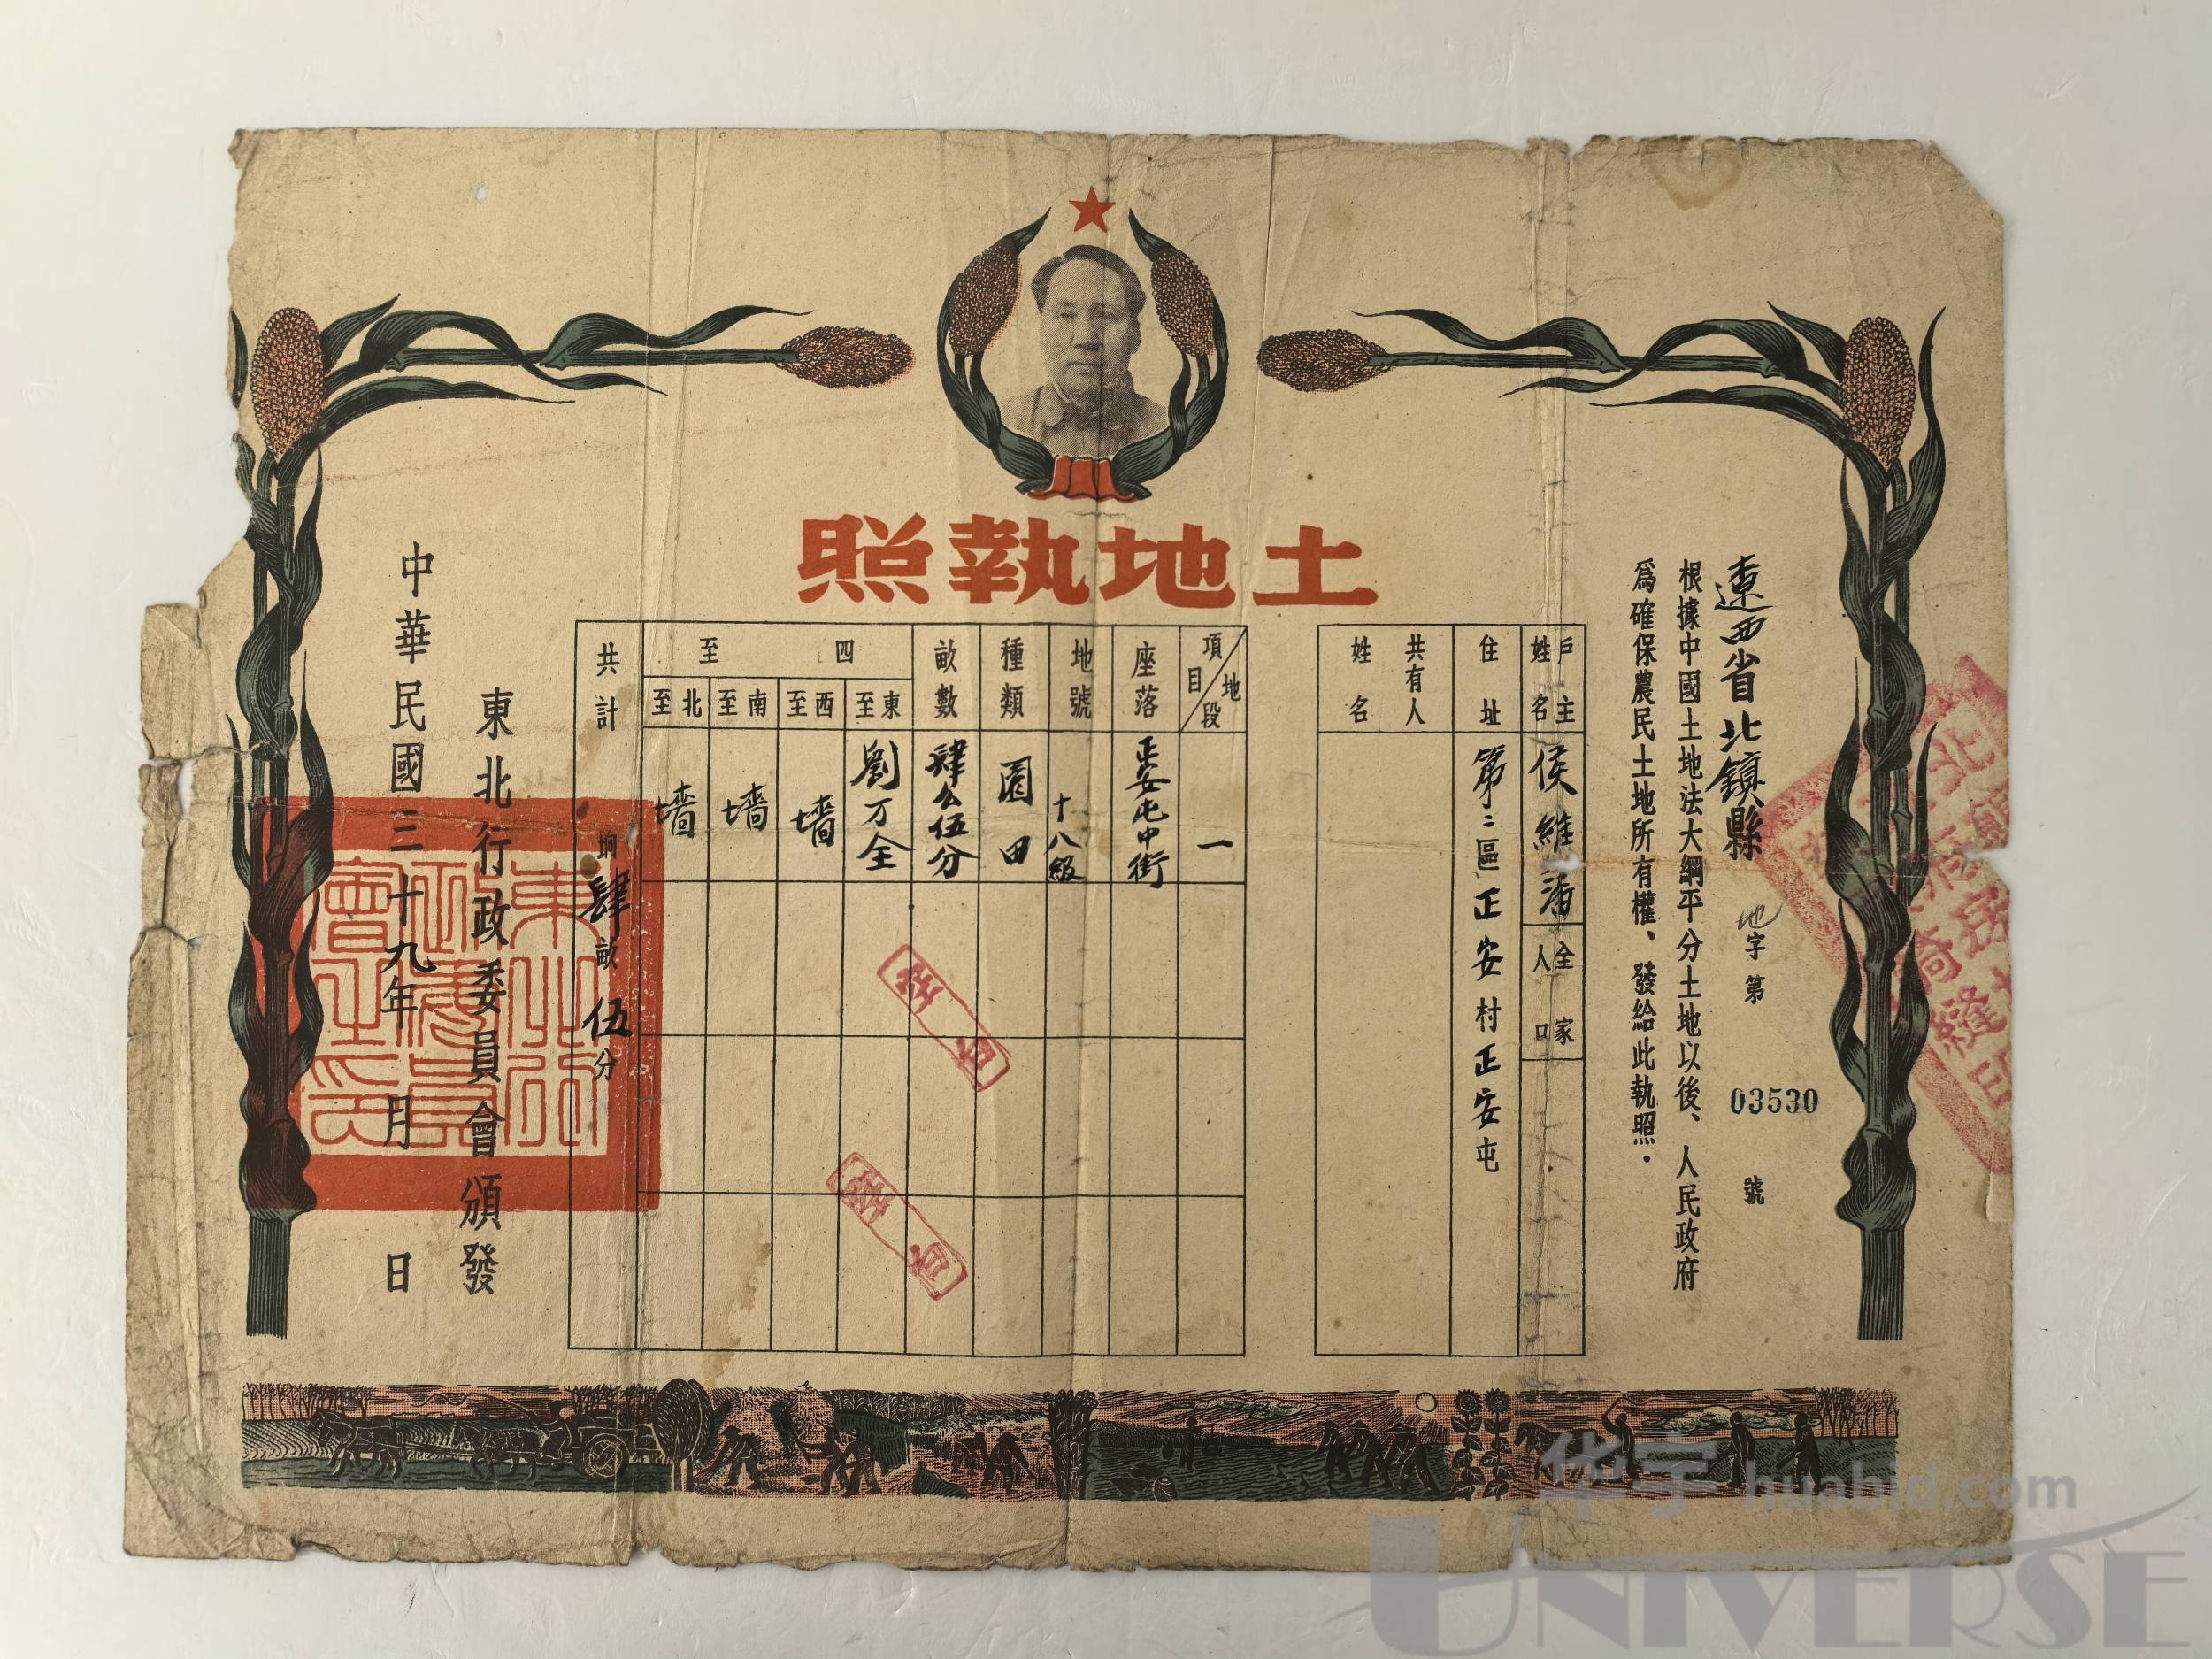 土地執照
遼西省北鎮縣
地字第03530號
根據中國土地法大綱平分土地以後、人民政府
爲確保農民土地所有權、發給此執照.
戶主姓名
侯維
全家人口
住址
第二區正安村正安屯
共有人姓名
項目
地段
一
座落
正安屯中街
地號
十八級
種類
園田
畝數
肆公伍分
四至
東至
劉万全
西至
墻
南至
墻
北至
墻
共計
坰肆畝伍分
東北行政委員會頒發
中華民國三十九年 月 日
東北行政委員會之印
华宇 huabid.com
UNIVERSE